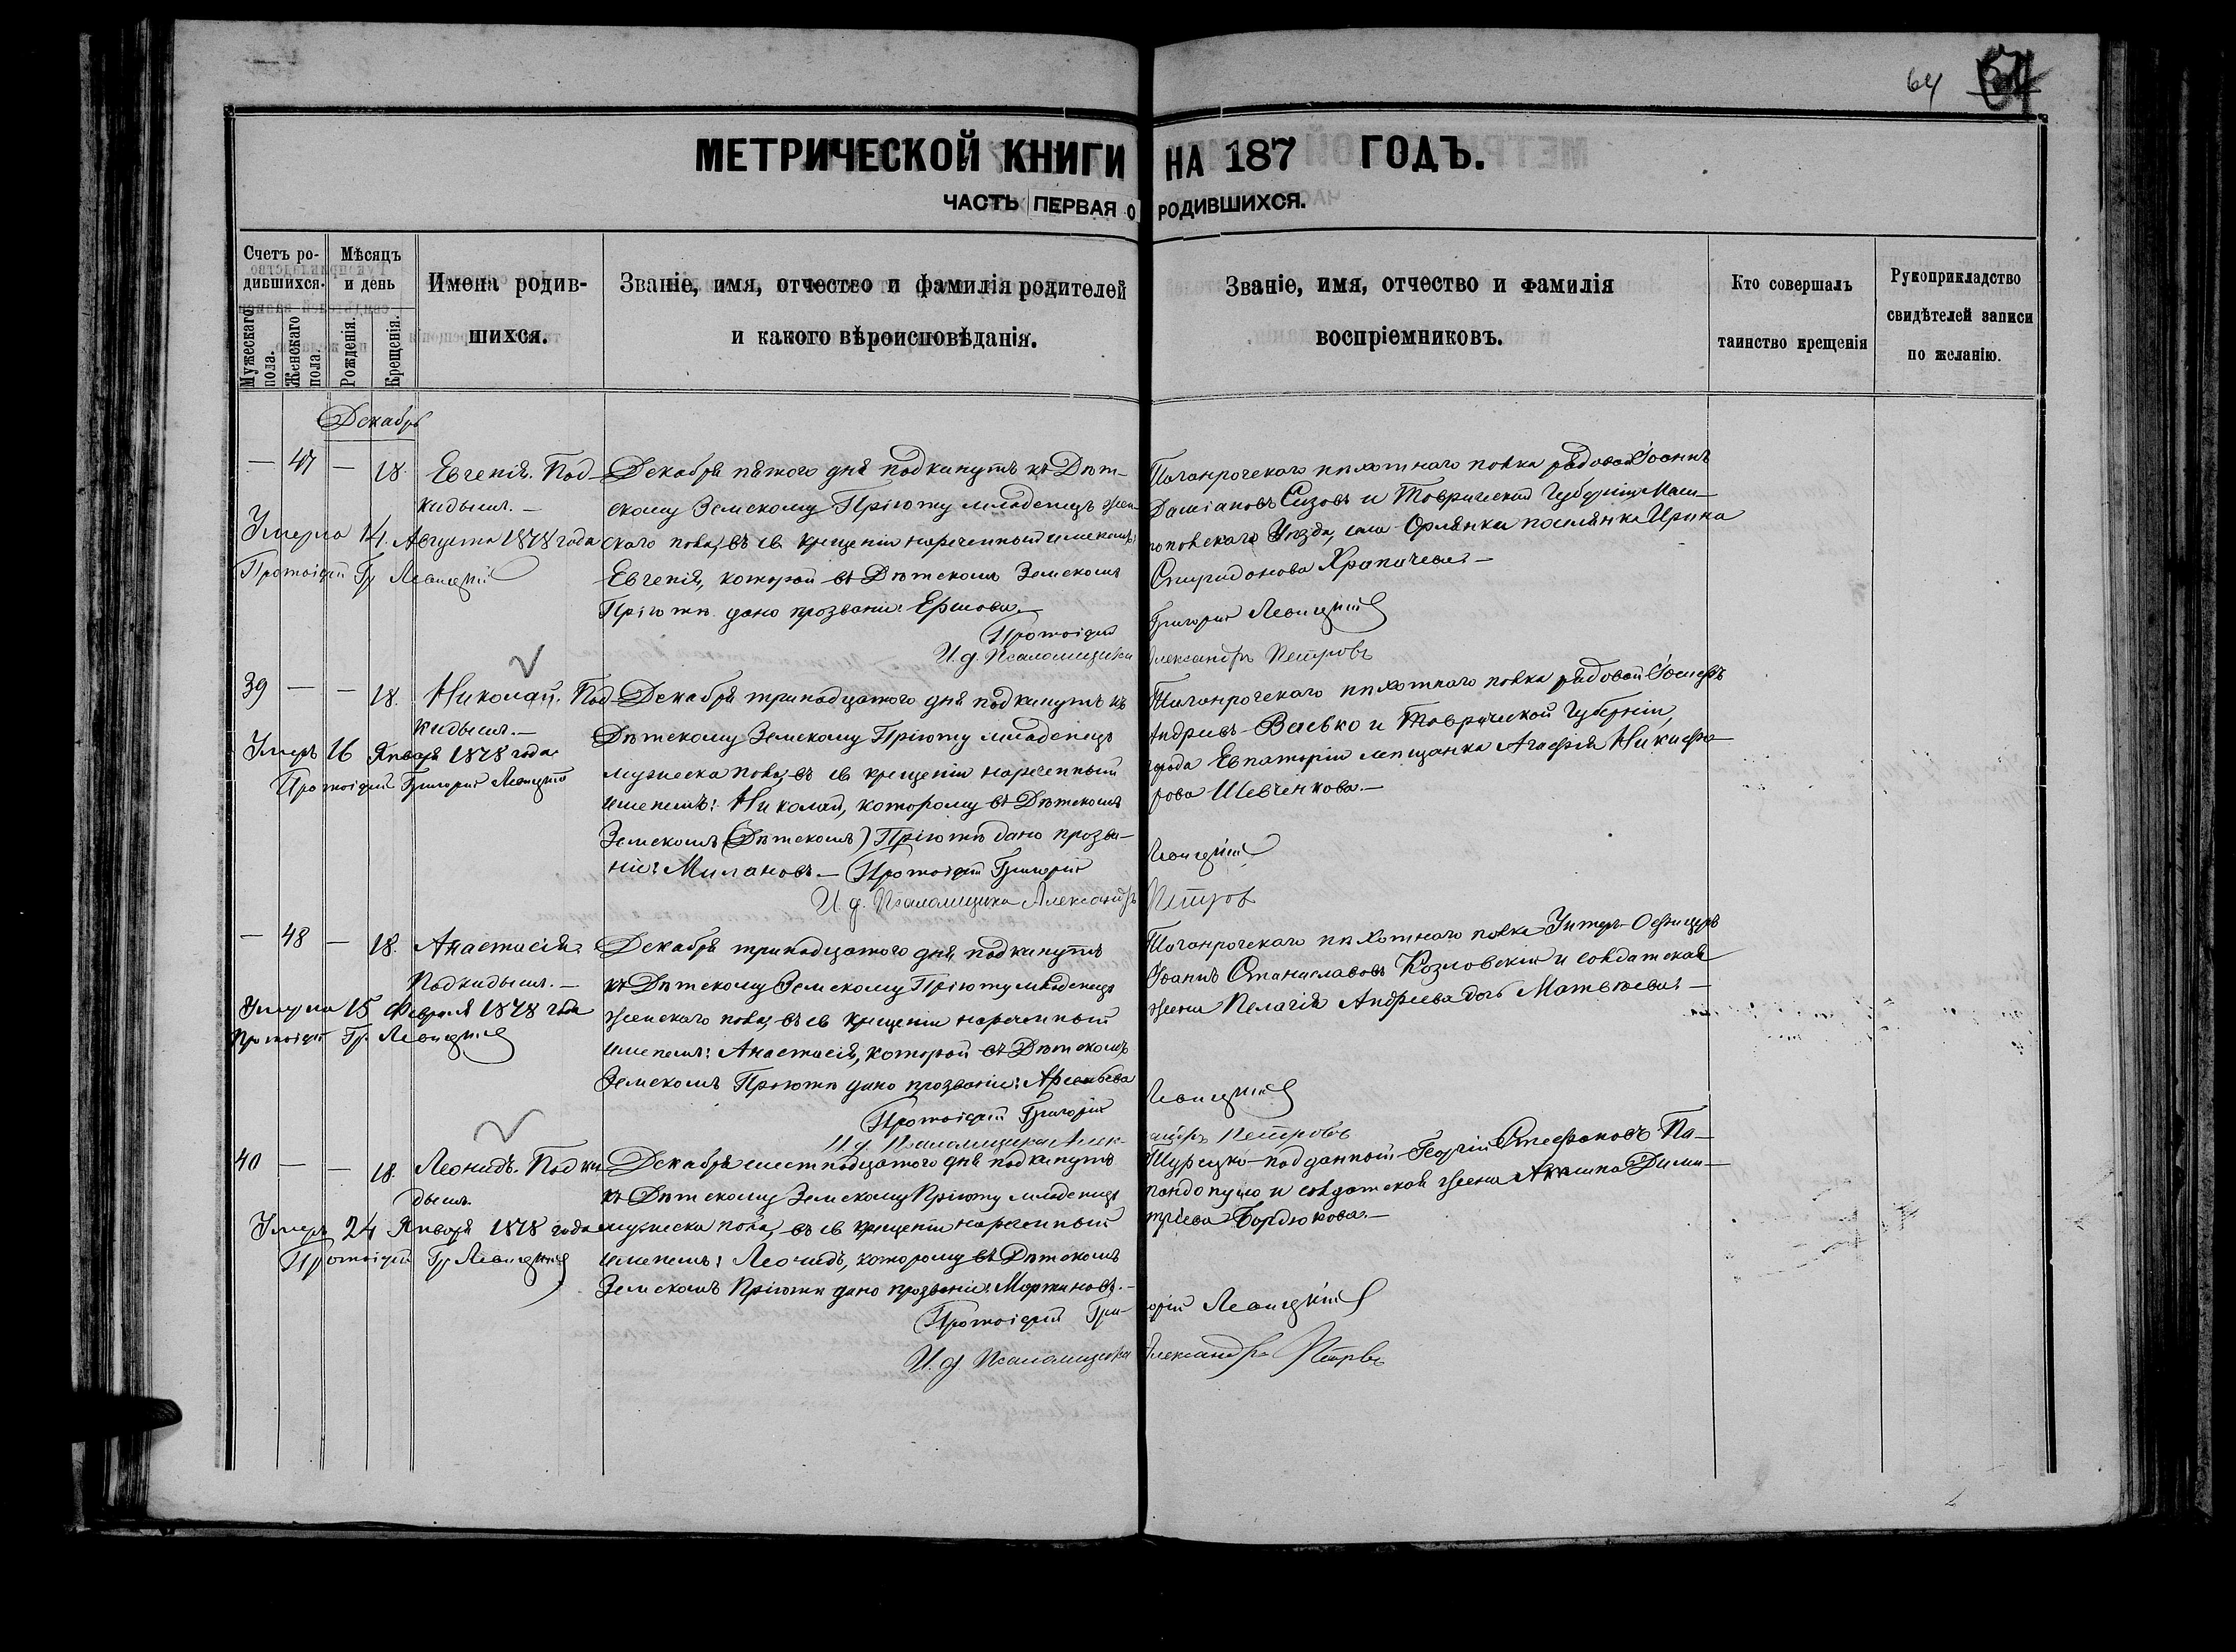 64
МЕТРИЧЕСКОЙ КНИГИ НА 187 ГОДЪ.
ЧАСТЬ ПЕРВАЯ О РОДИВШИХСЯ.
Счетъ ро-
дившихся.
Мужескаго
пола.
Женскаго
пола.
Мѣсяцъ
и день
Рожденія.
Крещенія.
Имена родив-
шихся.
Званіе, имя, отчество и фамилія родителей
и какого вѣроисповѣданія.
Званіе, имя, отчество и фамилія
воспріемниковъ.
Кто совершалъ
таинство крещенія
Рукоприкладство
свидѣтелей записи
по желанію.
Декабрь
— 47 — 18.
Евгенія. Под-
кидышъ. —
Умерла 14. Августа 1878 года
Протоіерей Гр Левицкій
Декабря пятаго дня подкинутъ къ Дѣт-
скому Земскому Пріюту младенецъ жен-
скаго пола, въ св крещеніи нареченный именемъ:
Евгенія, которой въ Дѣтскомъ Земскомъ
Пріютѣ дано прозваніе: Ершова. —
Протоіерей
И. д. Псаломщика
Таганрогскаго пѣхотнаго полка рядовой Іоаннъ
Сизовъ и Таврической Губерніи
Уѣзда, села Орлянки поселянка Ирина
Спиридонова —
Григорій Левицкій
Александръ Петровъ
39 — — 18.
Николай. Под-
кидышъ. —
Умеръ 16 Января 1878 года
Протоіерей Григорій Левицкій
Декабря тринадцатого дня подкинутъ къ
Дѣтскому Земскому Пріюту младенецъ
мужеска пола, въ св крещеніи нареченный
именемъ: Николай, которому въ Дѣтскомъ
Земскомъ (Дѣтскомъ) Пріютѣ дано прозва-
ніе: Милановъ. — Протоіерей Григорій
И. д. Псаломщика Александръ
Таганрогскаго пѣхотнаго полка рядовой Іосифъ
Андреевъ Васько и Таврической Губерніи,
города Евпаторіи мѣщанка Агафія Никифо-
рова Шевченкова. —
Левицкій
Петров
— 48 — 18.
Анастасія.
Подкидышъ. —
Умерла 15 Февраля 1878 года
Протоіерей Гр. Левицкій
Декабря тринадцатого дня, подкинутъ
къ Дѣтскому Земскому Пріюту младенецъ
женскаго пола, въ св крещеніи нареченный
именемъ: Анастасія, которой въ Дѣтскомъ
Земскомъ Пріютѣ дано прозваніе: Арсеньева
Протоіерей Григорій
И. д. Псаломщика Алек-
Таганрогскаго пѣхотнаго полка Унтеръ-Офицеръ
Іоаннъ Станиславовъ Козловскій и солдатская
жена Пелагія Андреева дочь Матвѣева. —
Левицкій
сандръ Петровъ
40 — — 18.
Леонидъ. Подки-
дышъ.
Умеръ 24 Января 1878 года
Протоіерей Гр Левицкій
Декабря шестнадцатого дня подкинутъ
къ Дѣтскому Земскому Пріюту младенецъ
мужеска пола, въ св крещеніи нареченный
именемъ: Леонидъ, которому въ Дѣтскомъ
Земскомъ Пріютѣ дано прозваніе: Мартиновъ. —
Протоіерей Гри-
И. д. Псаломщика
Турецко-подданный Георгій Стефановъ Па-
пандопуло и солдатская жена Дими-
тріева Бордюкова. —
горій Левицкій
Александръ Петровъ